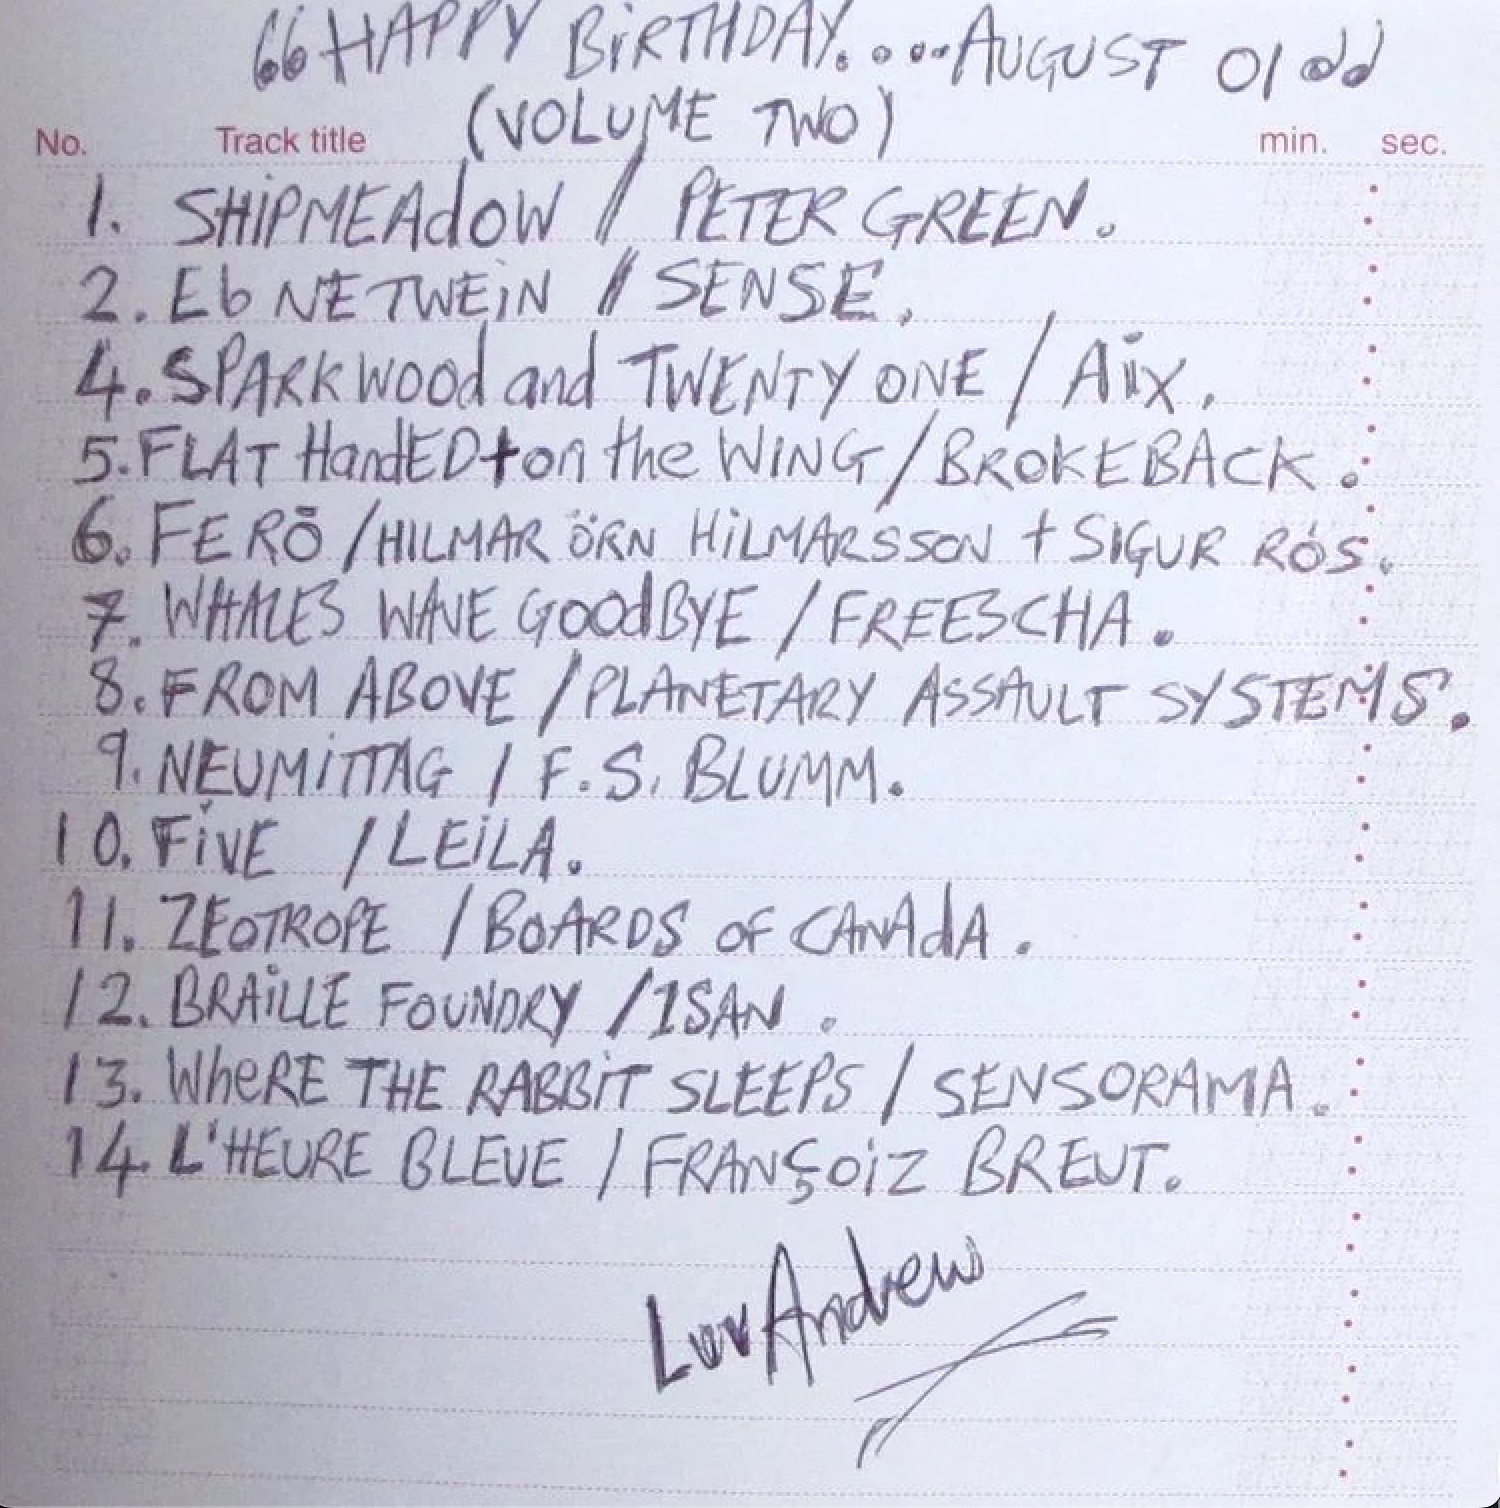 66 HAPPY BiRTHDAY.....AUGUST 01 dd
(VOLUME TWO)
No. Track title min. sec.
1. SHiPMEAdOW / PETER GREEN.
2. Eb NETWEiN // SENSE.
4. SPARKWOOd and TWENTY ONE / Aïx.
5. FLAT HandED + on the WING / BROKEBACK.
6. FERŌ / HILMAR ÖRN HiLMARSSON + SIGUR RÓS.
7. WHALES WAVE GOOdBYE / FREESCHA.
8. FROM ABOVE / PLANETARY ASSAULT SYSTEMS.
9. NEUMiTTAG / F.S. BLUMM.
10. FiVE / LEiLA.
11. ZEOTROPE / BOARDS OF CANAdA.
12. BRAiLLE FOUNDRY / ISAN.
13. WheRE THE RABBiT SLEEPS / SENSORAMA.
14. L'HEURE BLEUE / FRANÇOiZ BREUT.
Luv Andrew